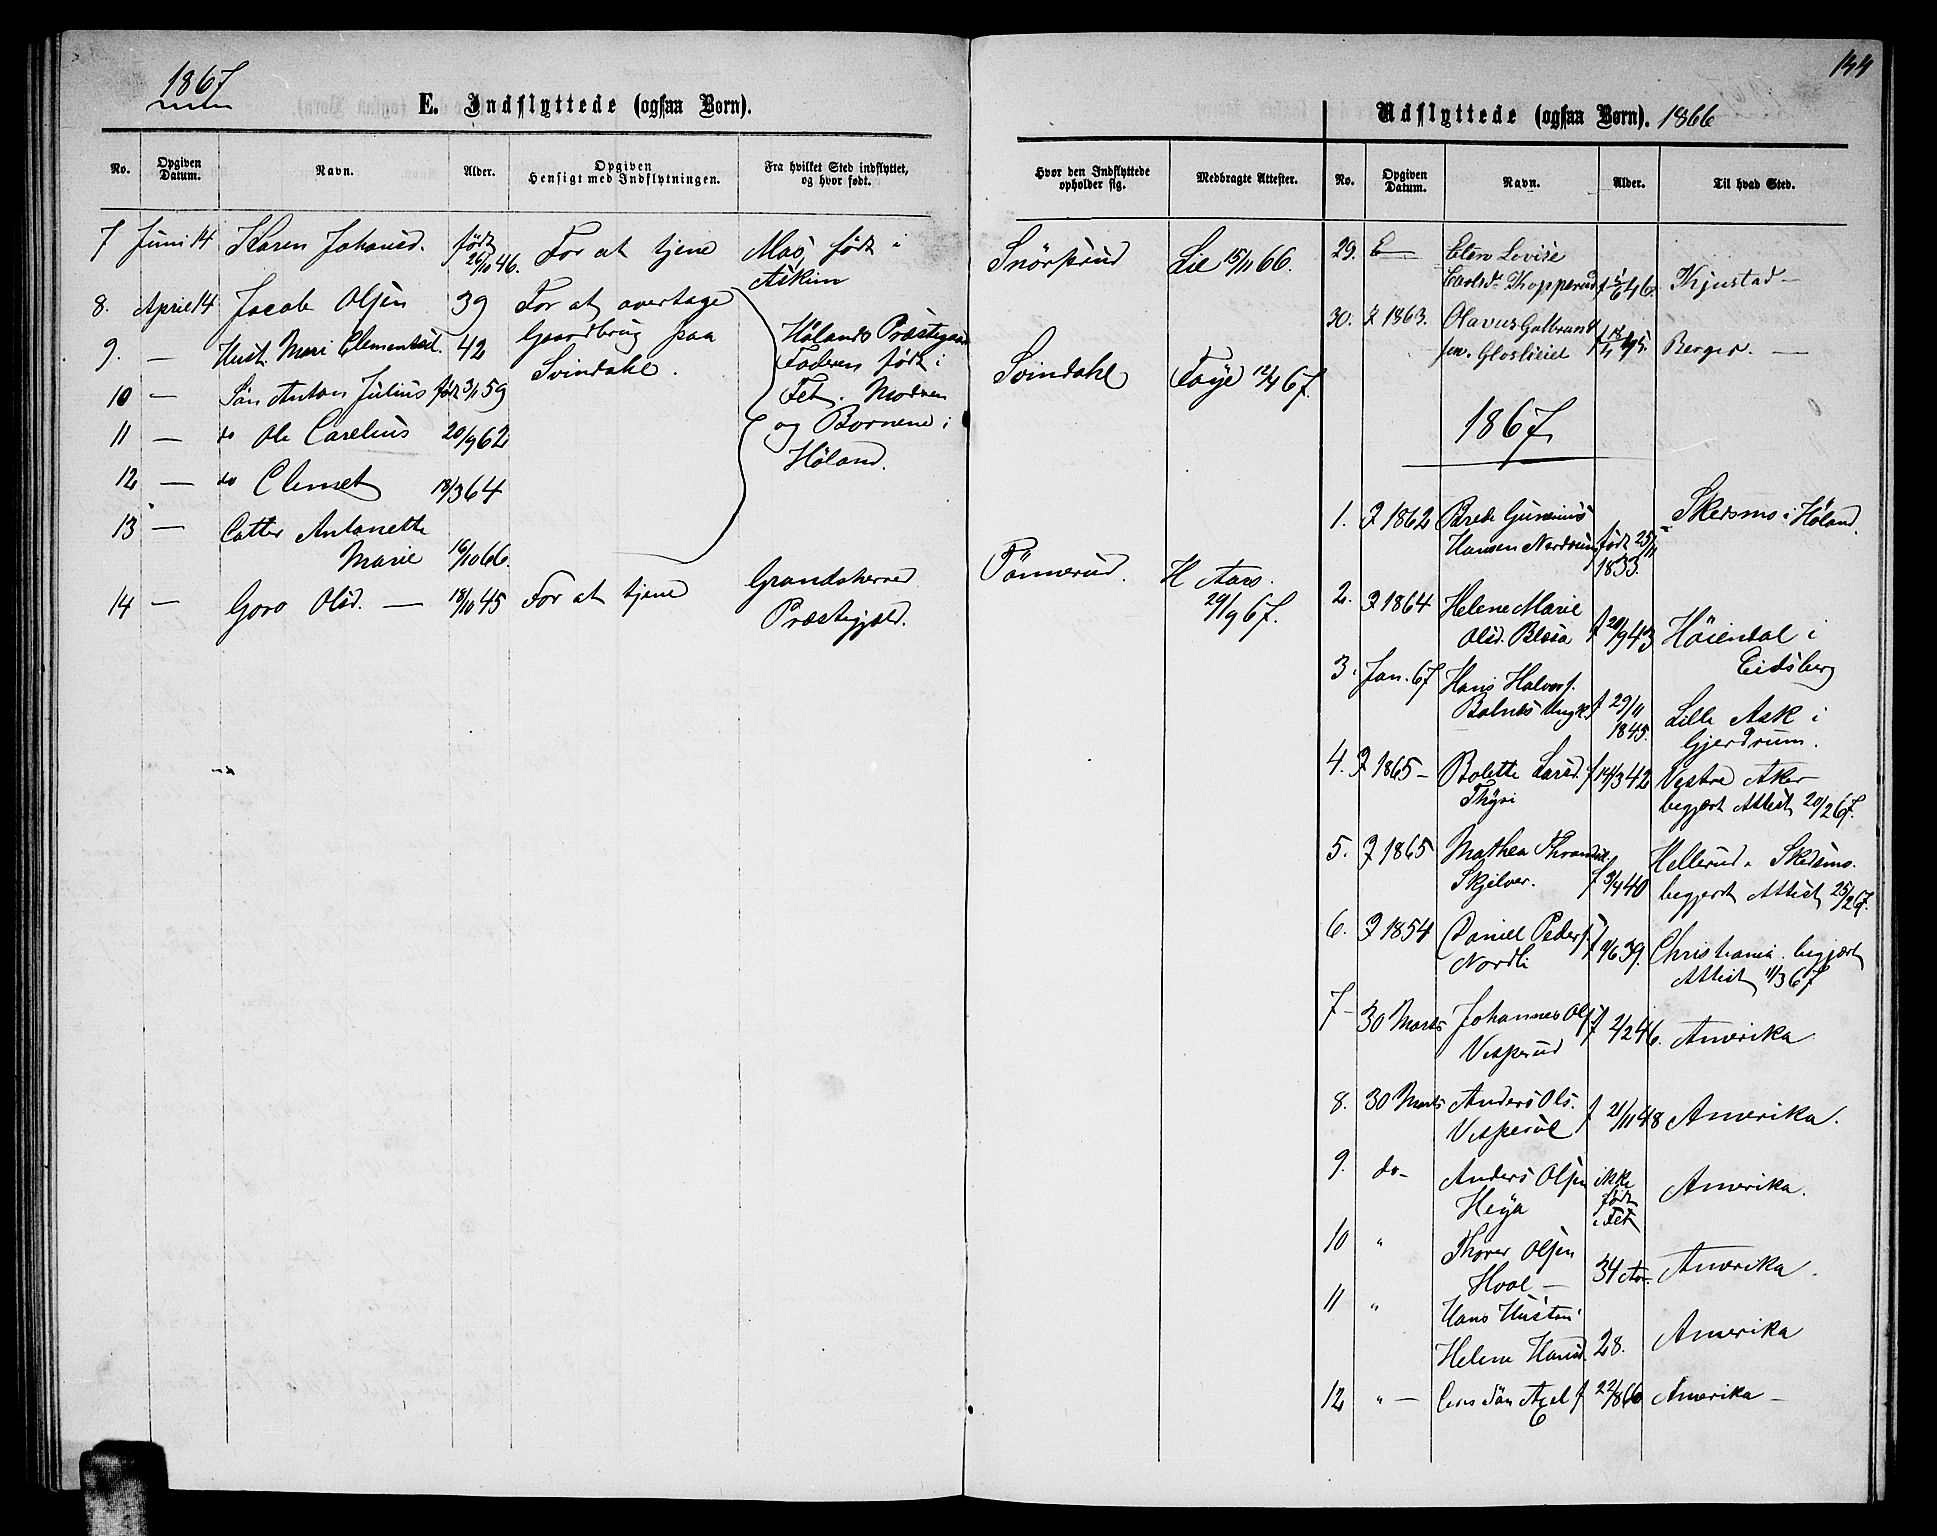 1867
E. Indflyttede (ogsaa Børn).
No. Opgiven Datum. Navn. Alder. Opgiven Hensigt med Indflytningen. Fra hvilket Sted indflyttet, og hvor født.
Hvor den Indflyttede opholder sig. Medbragte Attester.
7 Juni 14 Karen Johansd. født 26/10 46. For at tjene Mas, født i Askim Lie 15/11 66.
8. April 14 Jacob Olsen 39 For at overtage Gaardbrug paa Svindahl. Hølands Præstegj. Faderen født i Fet. Moderen og Børnene i Høland. Svindahl Faye 12/4 67.
9. — Hust. Mari Clementsd. 42
10 — Søn Anton Julius født 3/1 59
11 — do Ole Carelius 20/9 62
12 — do Clemet 18/3 64
13 — Datter Antonette Marie 16/10 66.
14 — Goro Olsd. — 18/10 45 For at tjene Grandsherred Præstegjæld. Tönnerud. H Aars. 29/9 67.
144
Udflyttede (ogsaa Børn). 1866
No. Opgiven Datum. Navn. Alder. Til hvad Sted.
29. E — Elen Lovise Carlsd. Kopperud 46. Kjustad —
30. I 1863. Olavus Gulbrandsen Berger. —
1867
1. I 1862 Brede Gunerius Hansen Nordrum født 25/11 1833. Skedsmo i Høland.
2. I 1864 Helene Marie Olsd. f 20/9 43 Høiendal i Eidsberg
3. Jan. 67 Hans Halvors. Balnes Ungk. f 29/11 1845. Lille Ask i Gjerdrum.
4. I 1865 — Bolette Larsd. f 14/3 42 Vestre Aker begjært Attest 20/2 67.
5. I 1865 Mathea Thrandsd. Skjelver. f 3/4 40 Hellerud Skedsmo. begjert Attest 25/2 67.
6. I 1854 Daniel Peders. Nordli f 9/6 39. Christiania. begjært Attest 11/3 67
7 — 30 Marts Johannes Ols. Vesperud f 2/2 46. Amerika
8. 30 Marts Anders Ols. Vesperud f 21/11 48 Amerika.
9. do — Anders Olsen Heya ikke født i Fet Amerika.
10 " Thorer Olsen Hval — 34 Aar Amerika.
11 " Hans Hustru Helene Hansd. 28. Amerika
12 " — Deres Søn Axel f 22/8 66 Amerika —